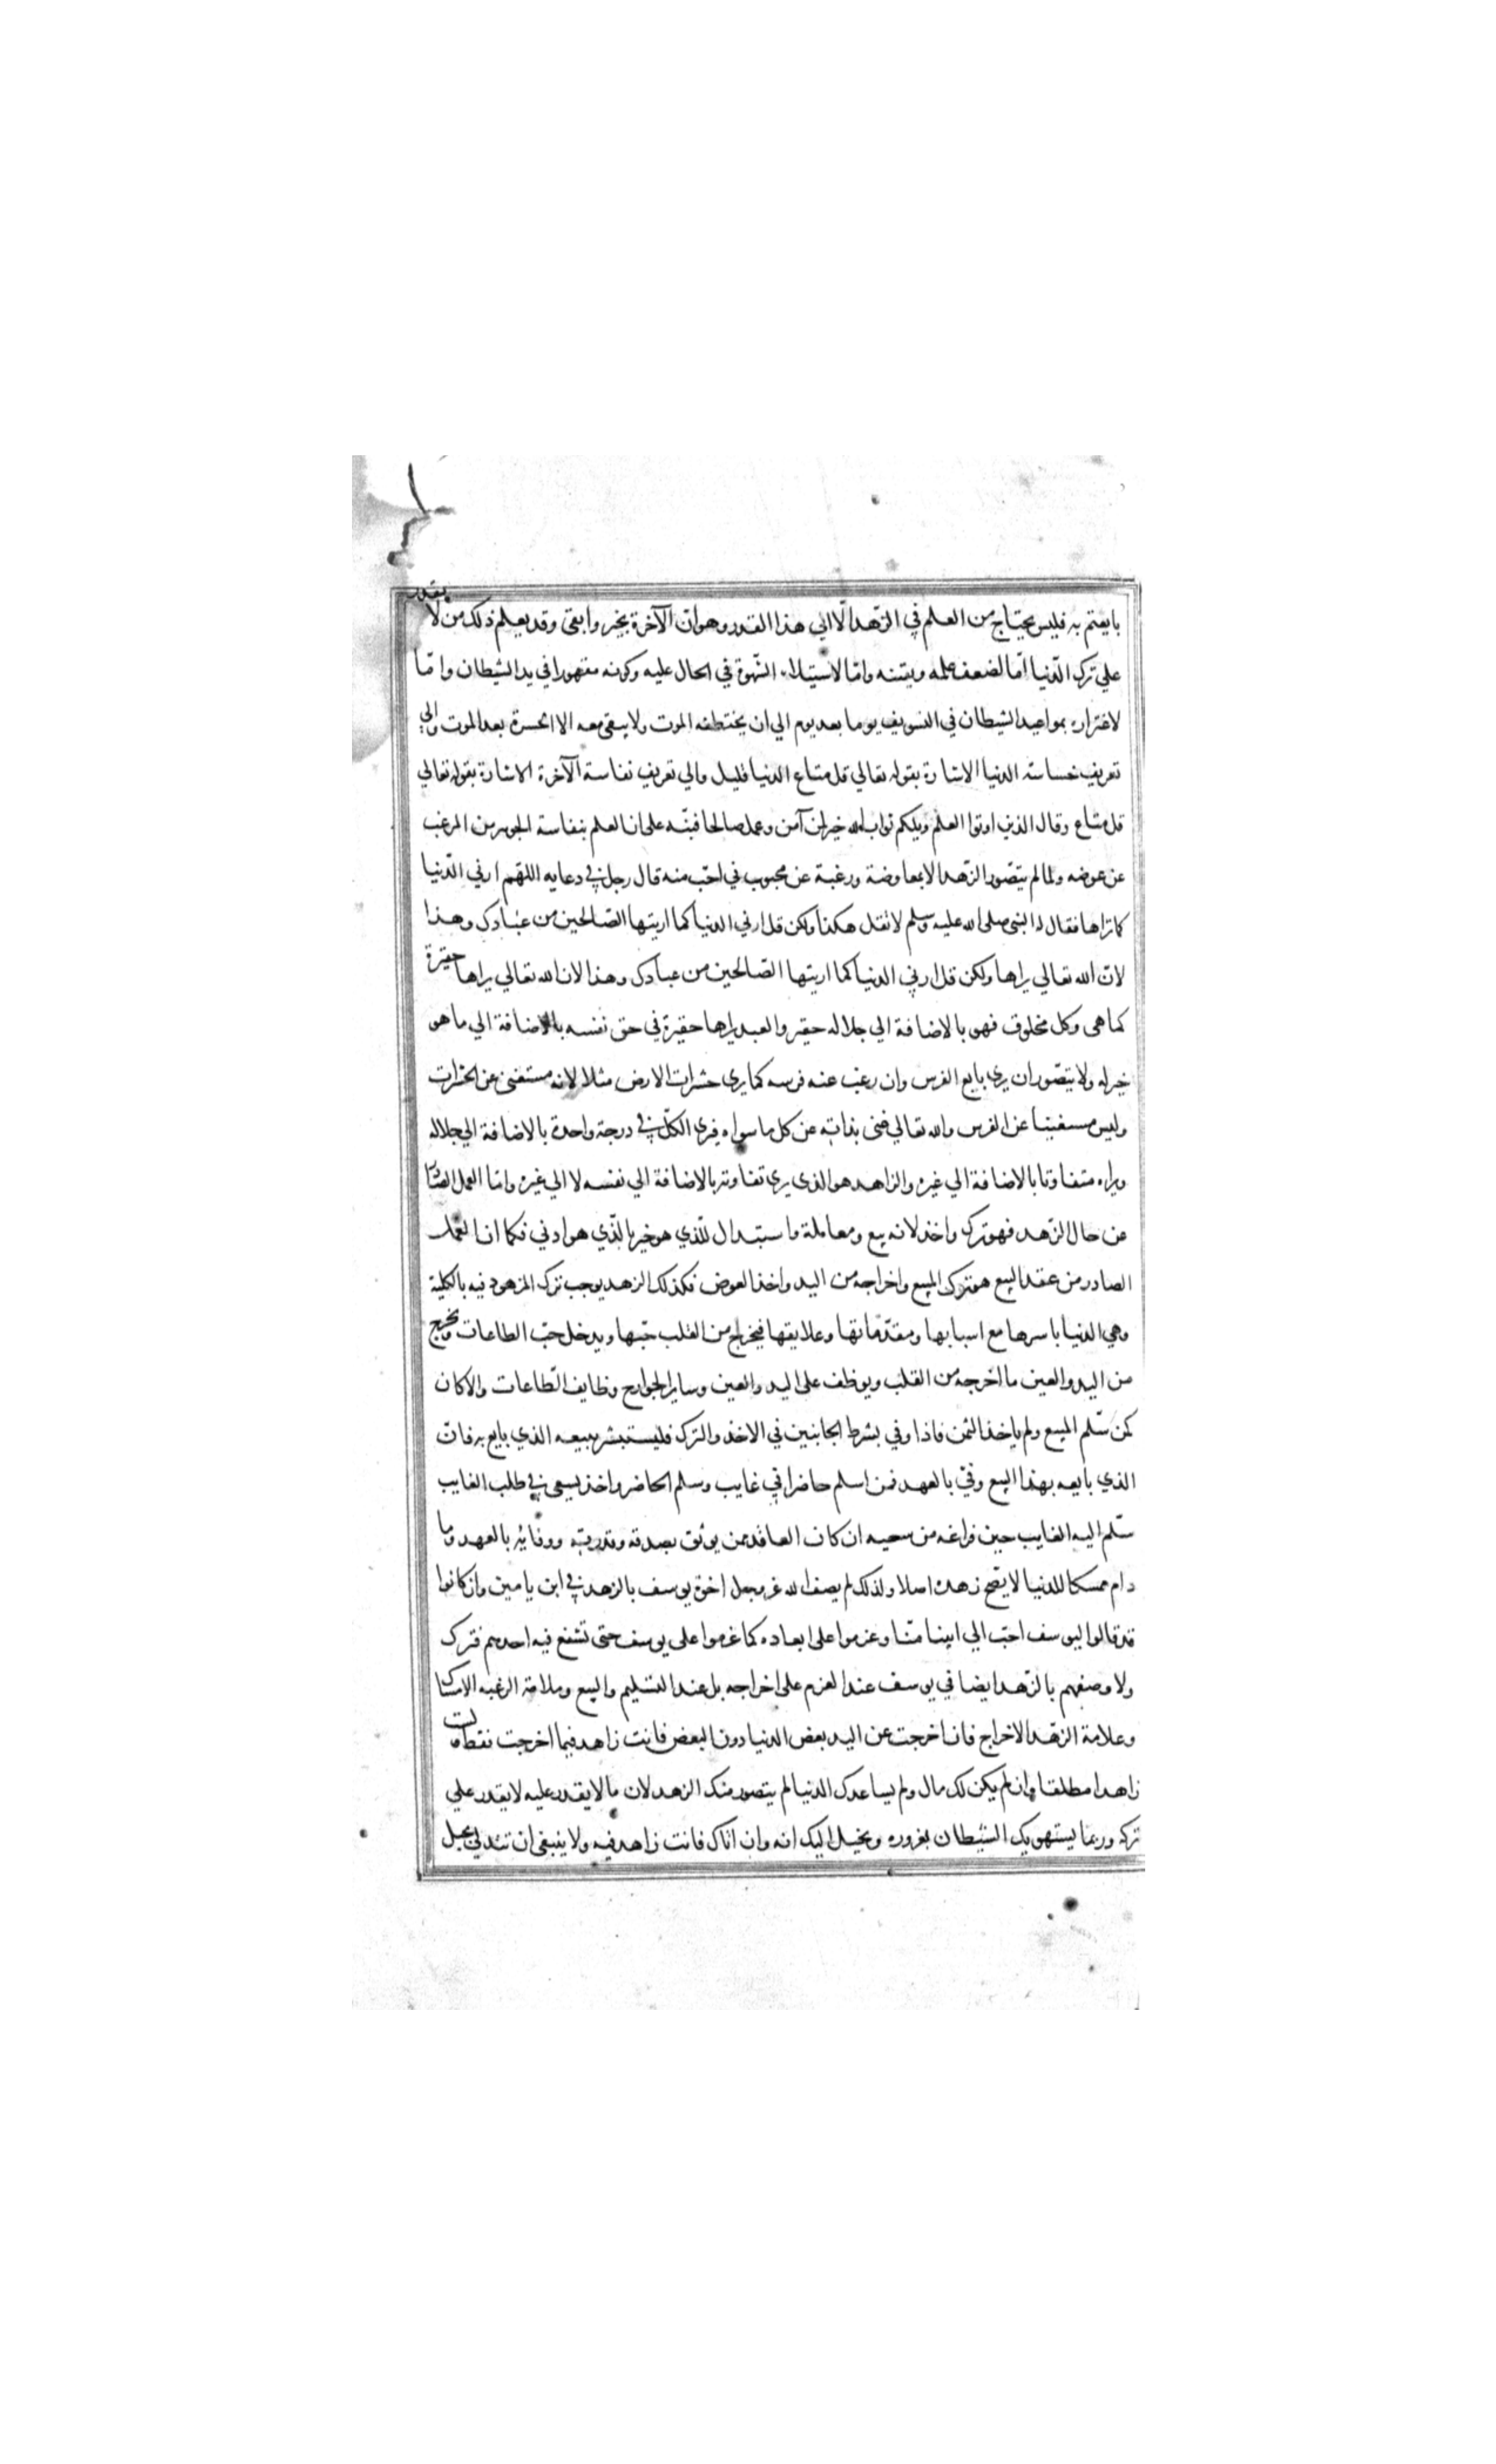 بايعتم به فليس يحتاج من العلم في الزّهد الّا الي هذا القدر وهو انّ الآخرة خير وابقى وقد يعلم ذلك من لا يقدر
علي ترك الدّنيا امّا لضعف علمه ويقينه وامّا لاستيلاء الشّهوة في الحال عليه وكونه مقهورا في يد الشيطان وامّا
لاغتراره بمواعيد الشيطان في التسويف يوما بعد يوم الي ان يختطفه الموت ولا يبقى معه الا الحسرة بعد الموت والي
تعريف خساسة الدنيا الاشارة بقوله تعالي قل متاع الدنيا قليل والي تعريف نفاسة الآخرة الاشارة بقوله تعالي
قل متاع وقال الذين اوتوا العلم ويلكم ثواب الله خير لمن آمن وعمل صالحا فنبّه على ان العلم بنفاسة الجوهر من المرغب
عن عوضه ولما لم يتصّور الزّهد الا بمعاوضة ورغبة عن محبوب في احبّ منه قال رجل في دعايه اللّهم ارني الدّنيا
كما تراها فقال له النبي صلى الله عليه وسلم لا تقل هكذا ولكن قل ارني الدنيا كما اريتها الصّالحين من عبادك وهذا
لانّ الله تعالي يراها ولكن قل ارني الدنيا كما اريتها الصّالحين من عبادك وهذا لان الله تعالي يراها حقيرة
كما هي وكل مخلوق فهو بالاضافة الي جلاله حقير والعبد يراها حقيرة في حق نفسه بالاضافة الي ما هو
خير له ولا يتصّور ان يرى بايع الفرس وان رغب عنه فرسه كما يرى حشرات الارض مثلا لانه مستغنى عن الحشرات
وليس مستغنيا عن الفرس والله تعالي غنى بذاته عن كل ما سواه فيرى الكلّ في درجة واحدة بالاضافة الي جلاله
ويراه متفاوتا بالاضافة الي غيره والزاهد هو الذى يرى تفاوته بالاضافة الي نفسه لا الي غيره وامّا العمل الصّادر
عن حال الزّهد فهو ترك واخذ لانه بيع ومعاملة واستبدال للّذي هو خير بالّذي هو ادني فكما ان العمل
الصادر من عقد البيع هو ترك المبيع واخراجه من اليد واخذ العوض فكذلك الزهد يوجب ترك المزهود فيه بالكلية
وهي الدنيا باسرها مع اسبابها ومقدّماتها وعلايقها فيخرج من القلب حبّها ويدخل حبّ الطاعات ويخرج
من اليد والعين ما اخرجه من القلب ويوظف على اليد والعين وساير الجوارح وظايف الطّاعات والا كان
كمن سّلم المبيع ولم ياخذ الثمن فاذا وفي بشرط الجانبين في الاخذ والترك فليستبشر ببيعه الذي بايع به فانّ
الذي بايعه بهذا البيع وفيّ بالعهد فمن اسلم حاضرا في غايب وسلم الحاضر واخذ يسعى في طلب الغايب
سّلم اليه الغايب حين فراغه من سعيه ان كان العاقد ممن يوثق بصدقه وقدرته ووفائه بالعهد وما
دام ممسكا للدنيا لا يصّح زهده اصلا ولذلك لم يصف الله عز وجل اخوة يوسف بالزهد في ابن يامين وان كانوا
قد قالوا ليوسف احبّ الي ابينا منّا وعزموا على ابعاده كما عزموا على يوسف حتى تشفع فيه احدهم فترك
ولا وصفهم بالزّهد ايضا في يوسف عند العزم على اخراجه بل عند التسليم والبيع وعلامة الرغبه الامساك
وعلامة الزهد الاخراج فان اخرجت عن اليد بعض الدنيا دون البعض فانت زاهد فيما اخرجت فقط ولست
زاهدا مطلقا وان لم يكن لك مال ولم يساعدك الدنيا لم يتصور منك الزهد لان ما لا يقدر عليه لا يقدر علي
تركه وربما يستهويك الشّيطان بغروره ويخيل اليك انه وان اتاك فانت زاهد فيه ولا ينبغى ان تتدلي بحبل